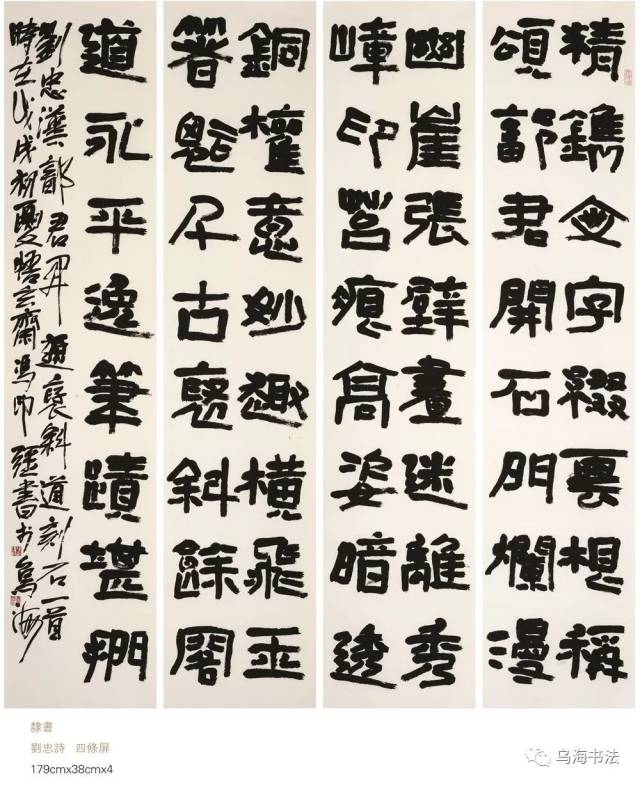 精鐫文字綴雲想稱
頌鄐君開石門爛漫
幽崖張壁畫迷離秀
嶂印苔痕高姿暗透
銅權意妙趣橫飛玉
箸魂千古褒斜餘閣
道永平逸筆蹟堪捫
劉忠漢鄐君開通褒斜道刻石一首
時在戊戌初夏悟齋馮印強書於烏海
隸書
劉忠詩 四條屏
179cmx38cmx4
乌海书法